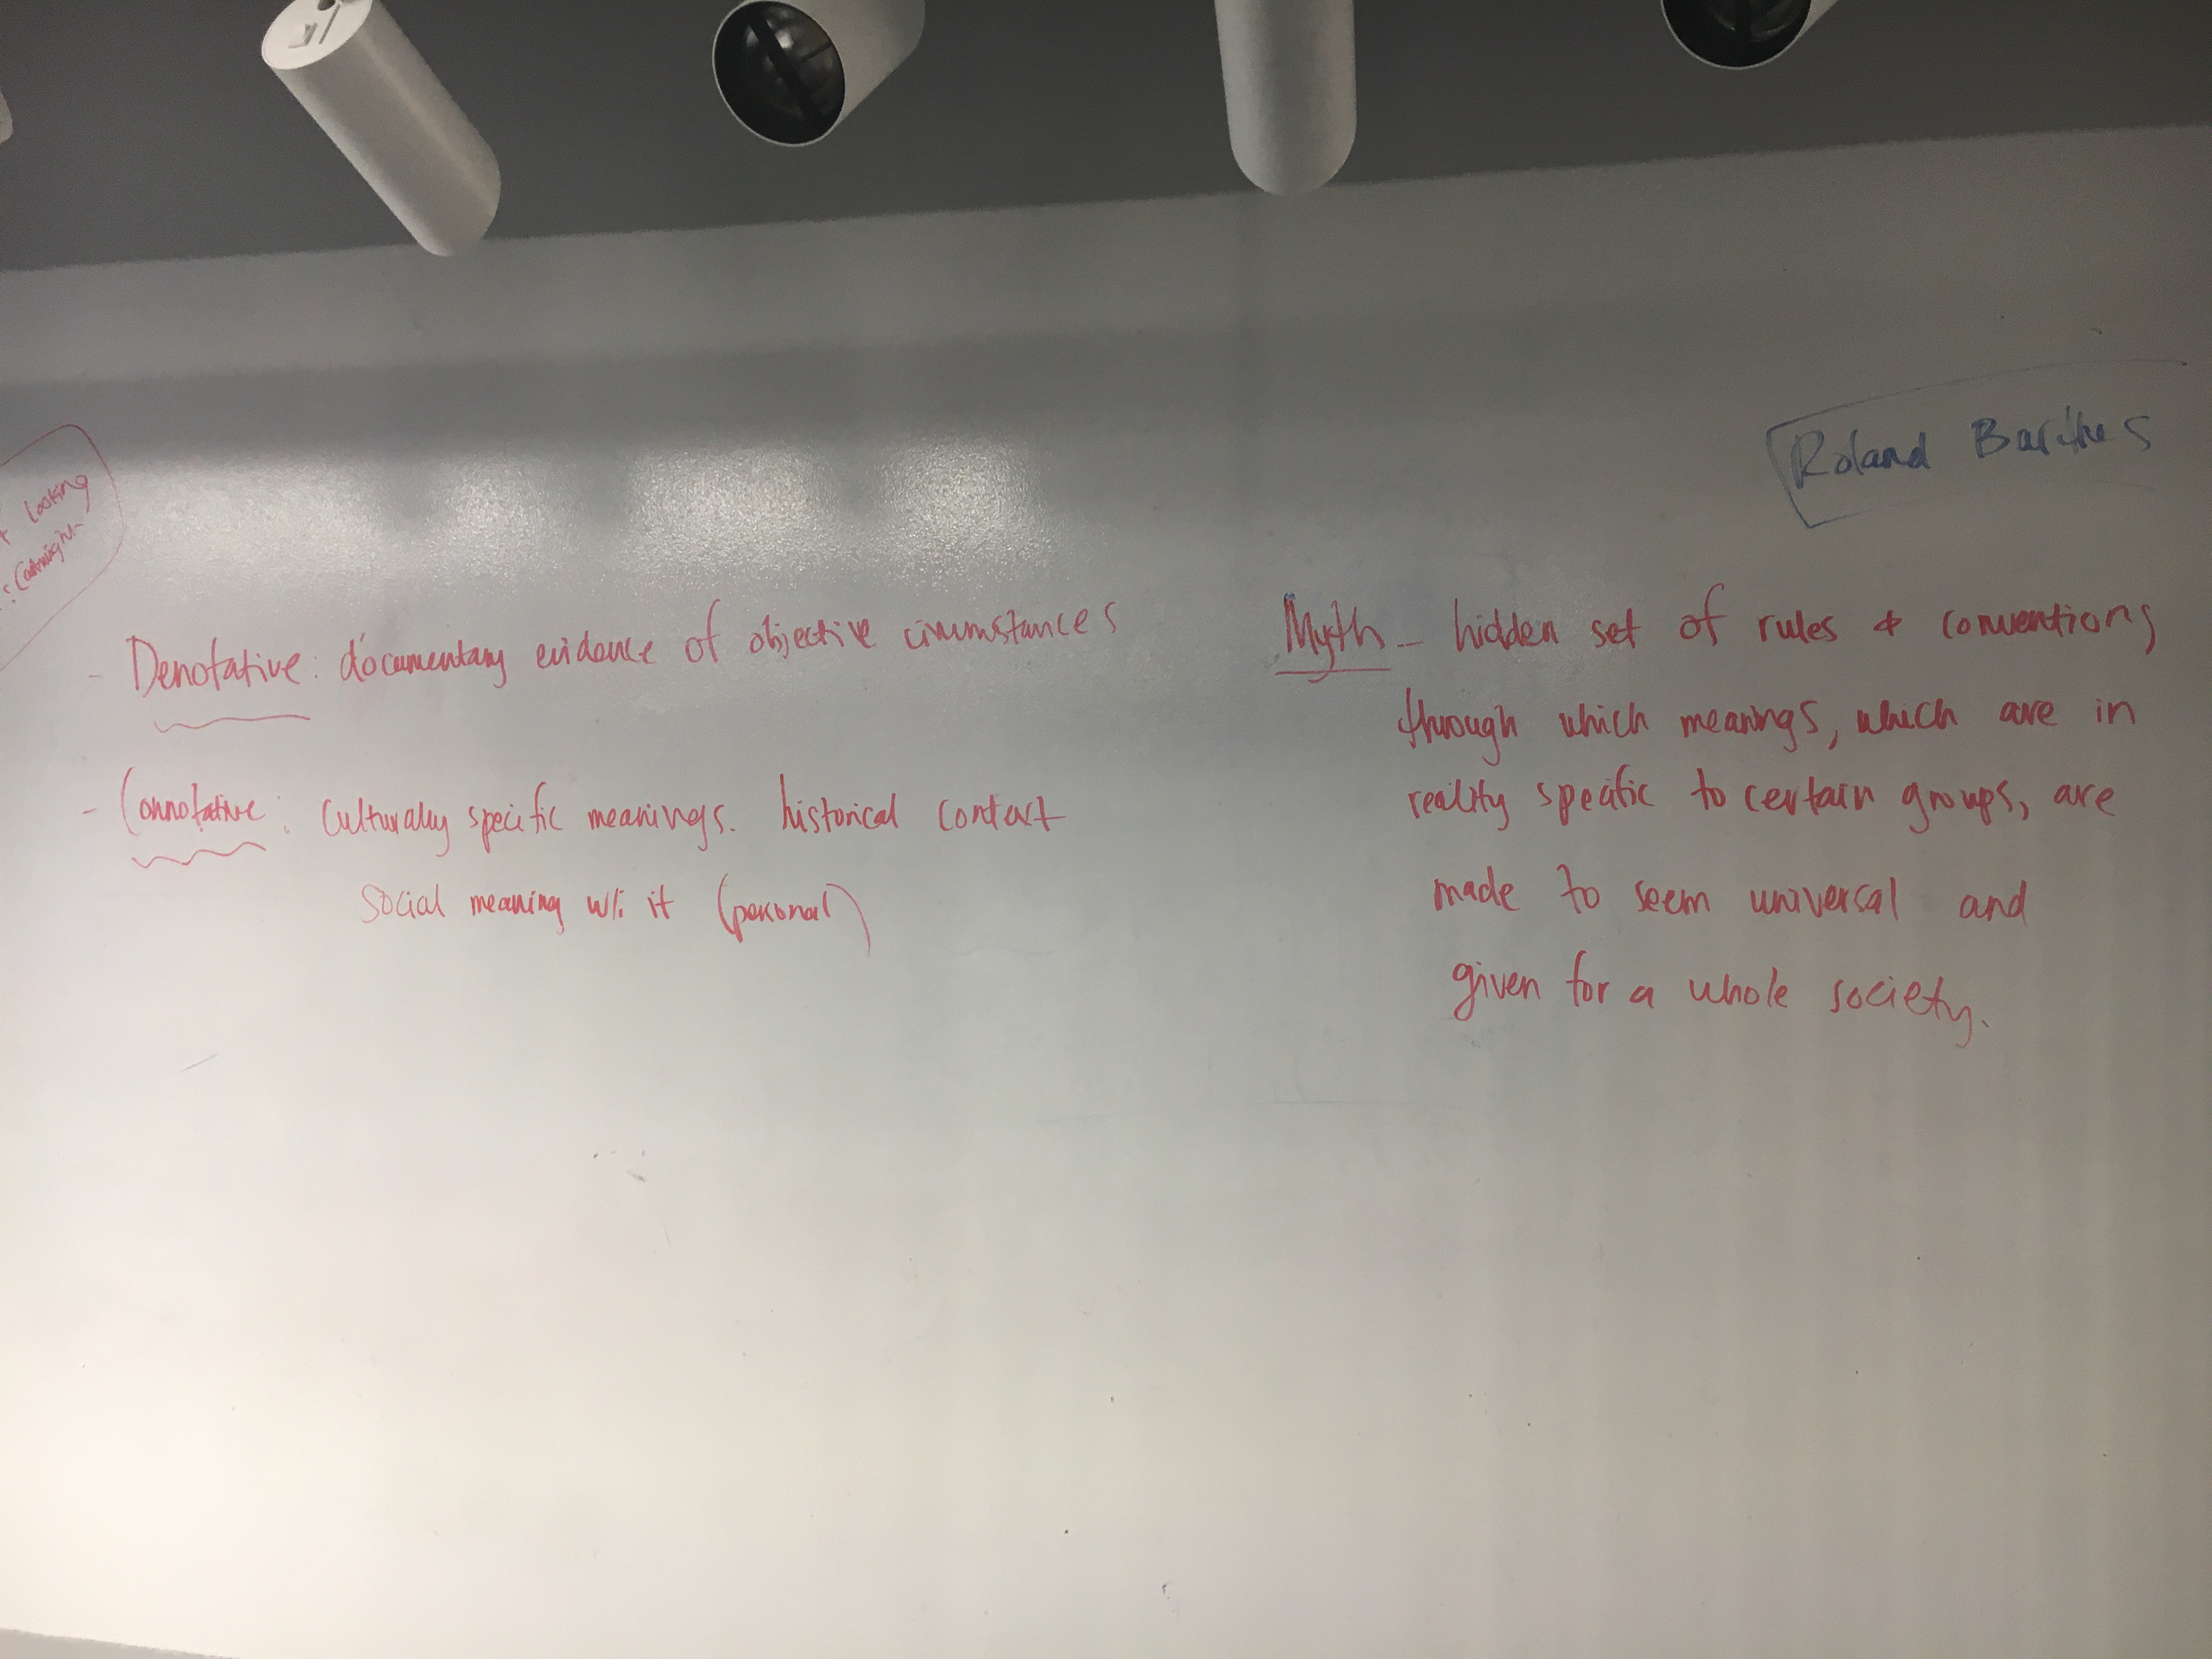 looking
Cartwright
Roland Barthes
- Denotative: documentary evidence of objective circumstances
- Connotative: Culturally specific meanings. historical context
social meaning w/i it (personal)
Myth - hidden set of rules & conventions
through which meanings, which are in
reality specific to certain groups, are
made to seem universal and
given for a whole society.